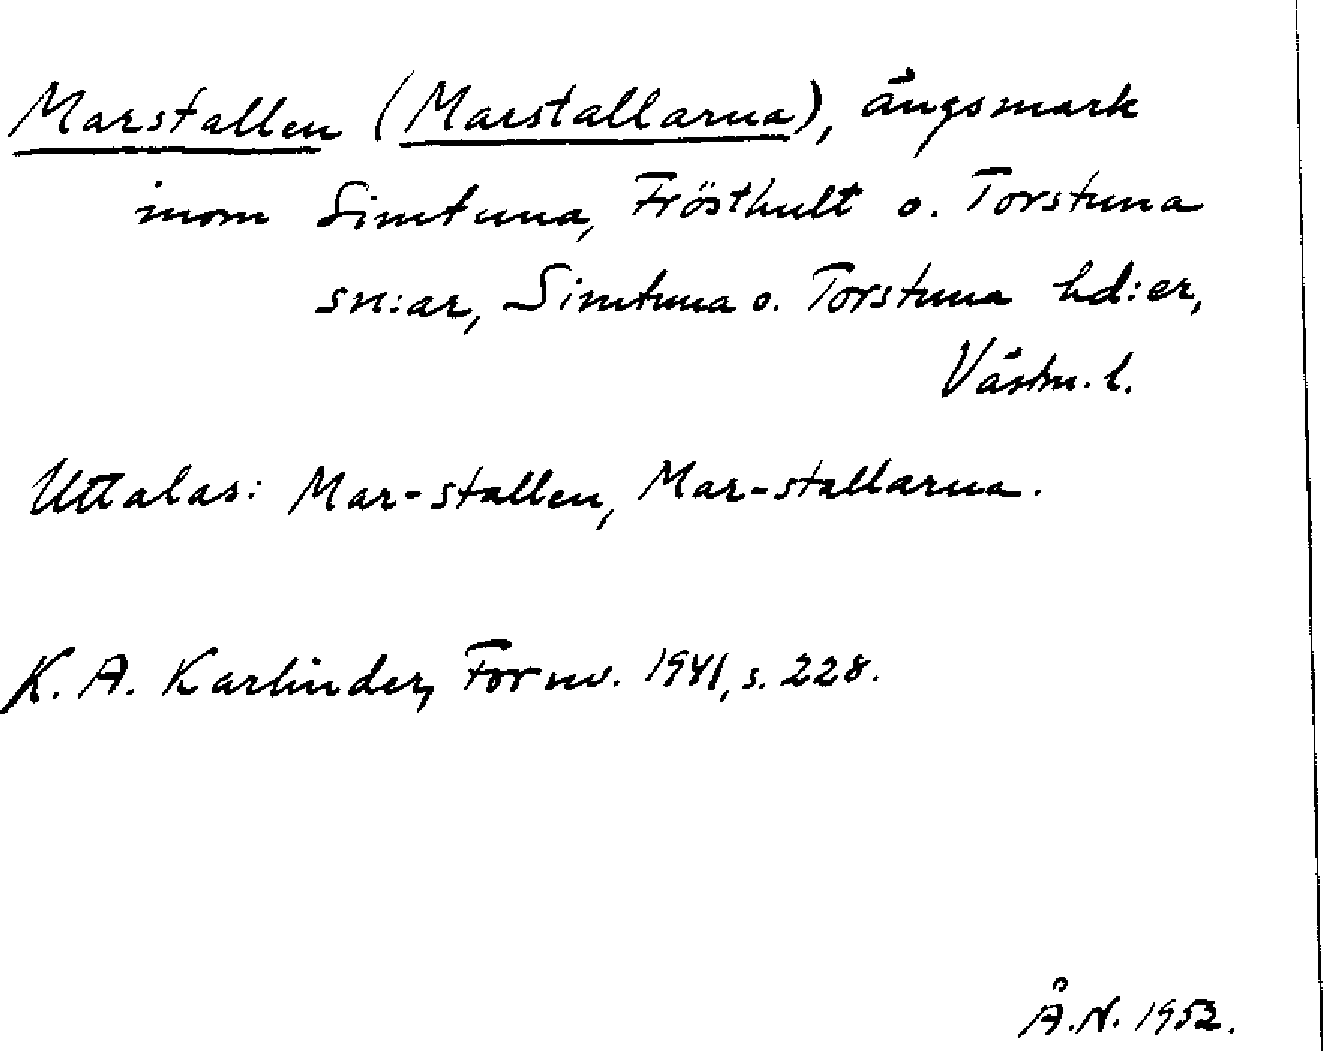 Marstallen (Marstallarna), ängsmark
inom Simtuna, Frösthult o. Torstuna
sn:ar, Simtuna o. Torstuna hd:er,
Västm. l.
Uttalas: Mar-stallen, Mar-stallarna.
K. A. Karlinder, Fornv. 1941, s. 228.
Å.N. 1952.